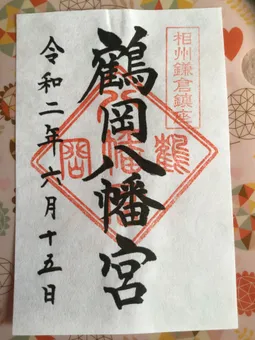 相州鎌倉鎮座
鶴岡八幡宮
令和二年六月十五日